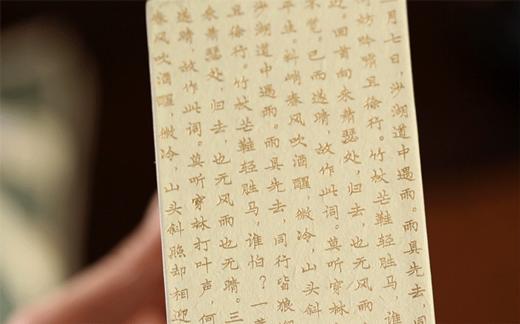 月七日，沙湖道中遇雨。雨具先去，同
妨吟啸且徐行。竹杖芒鞋轻胜马，谁
迎。回首向来萧瑟处，归去，也无风雨
不觉。已而遂晴，故作此词。莫听穿林
平生。料峭春风吹酒醒，微冷，山头斜
沙湖道中遇雨。雨具先去，同行皆狼
且徐行。竹杖芒鞋轻胜马，谁怕？一蓑
来萧瑟处，归去，也无风雨也无晴。三
遂晴，故作此词。莫听穿林打叶声，何
春风吹酒醒，微冷，山头斜照却相迎